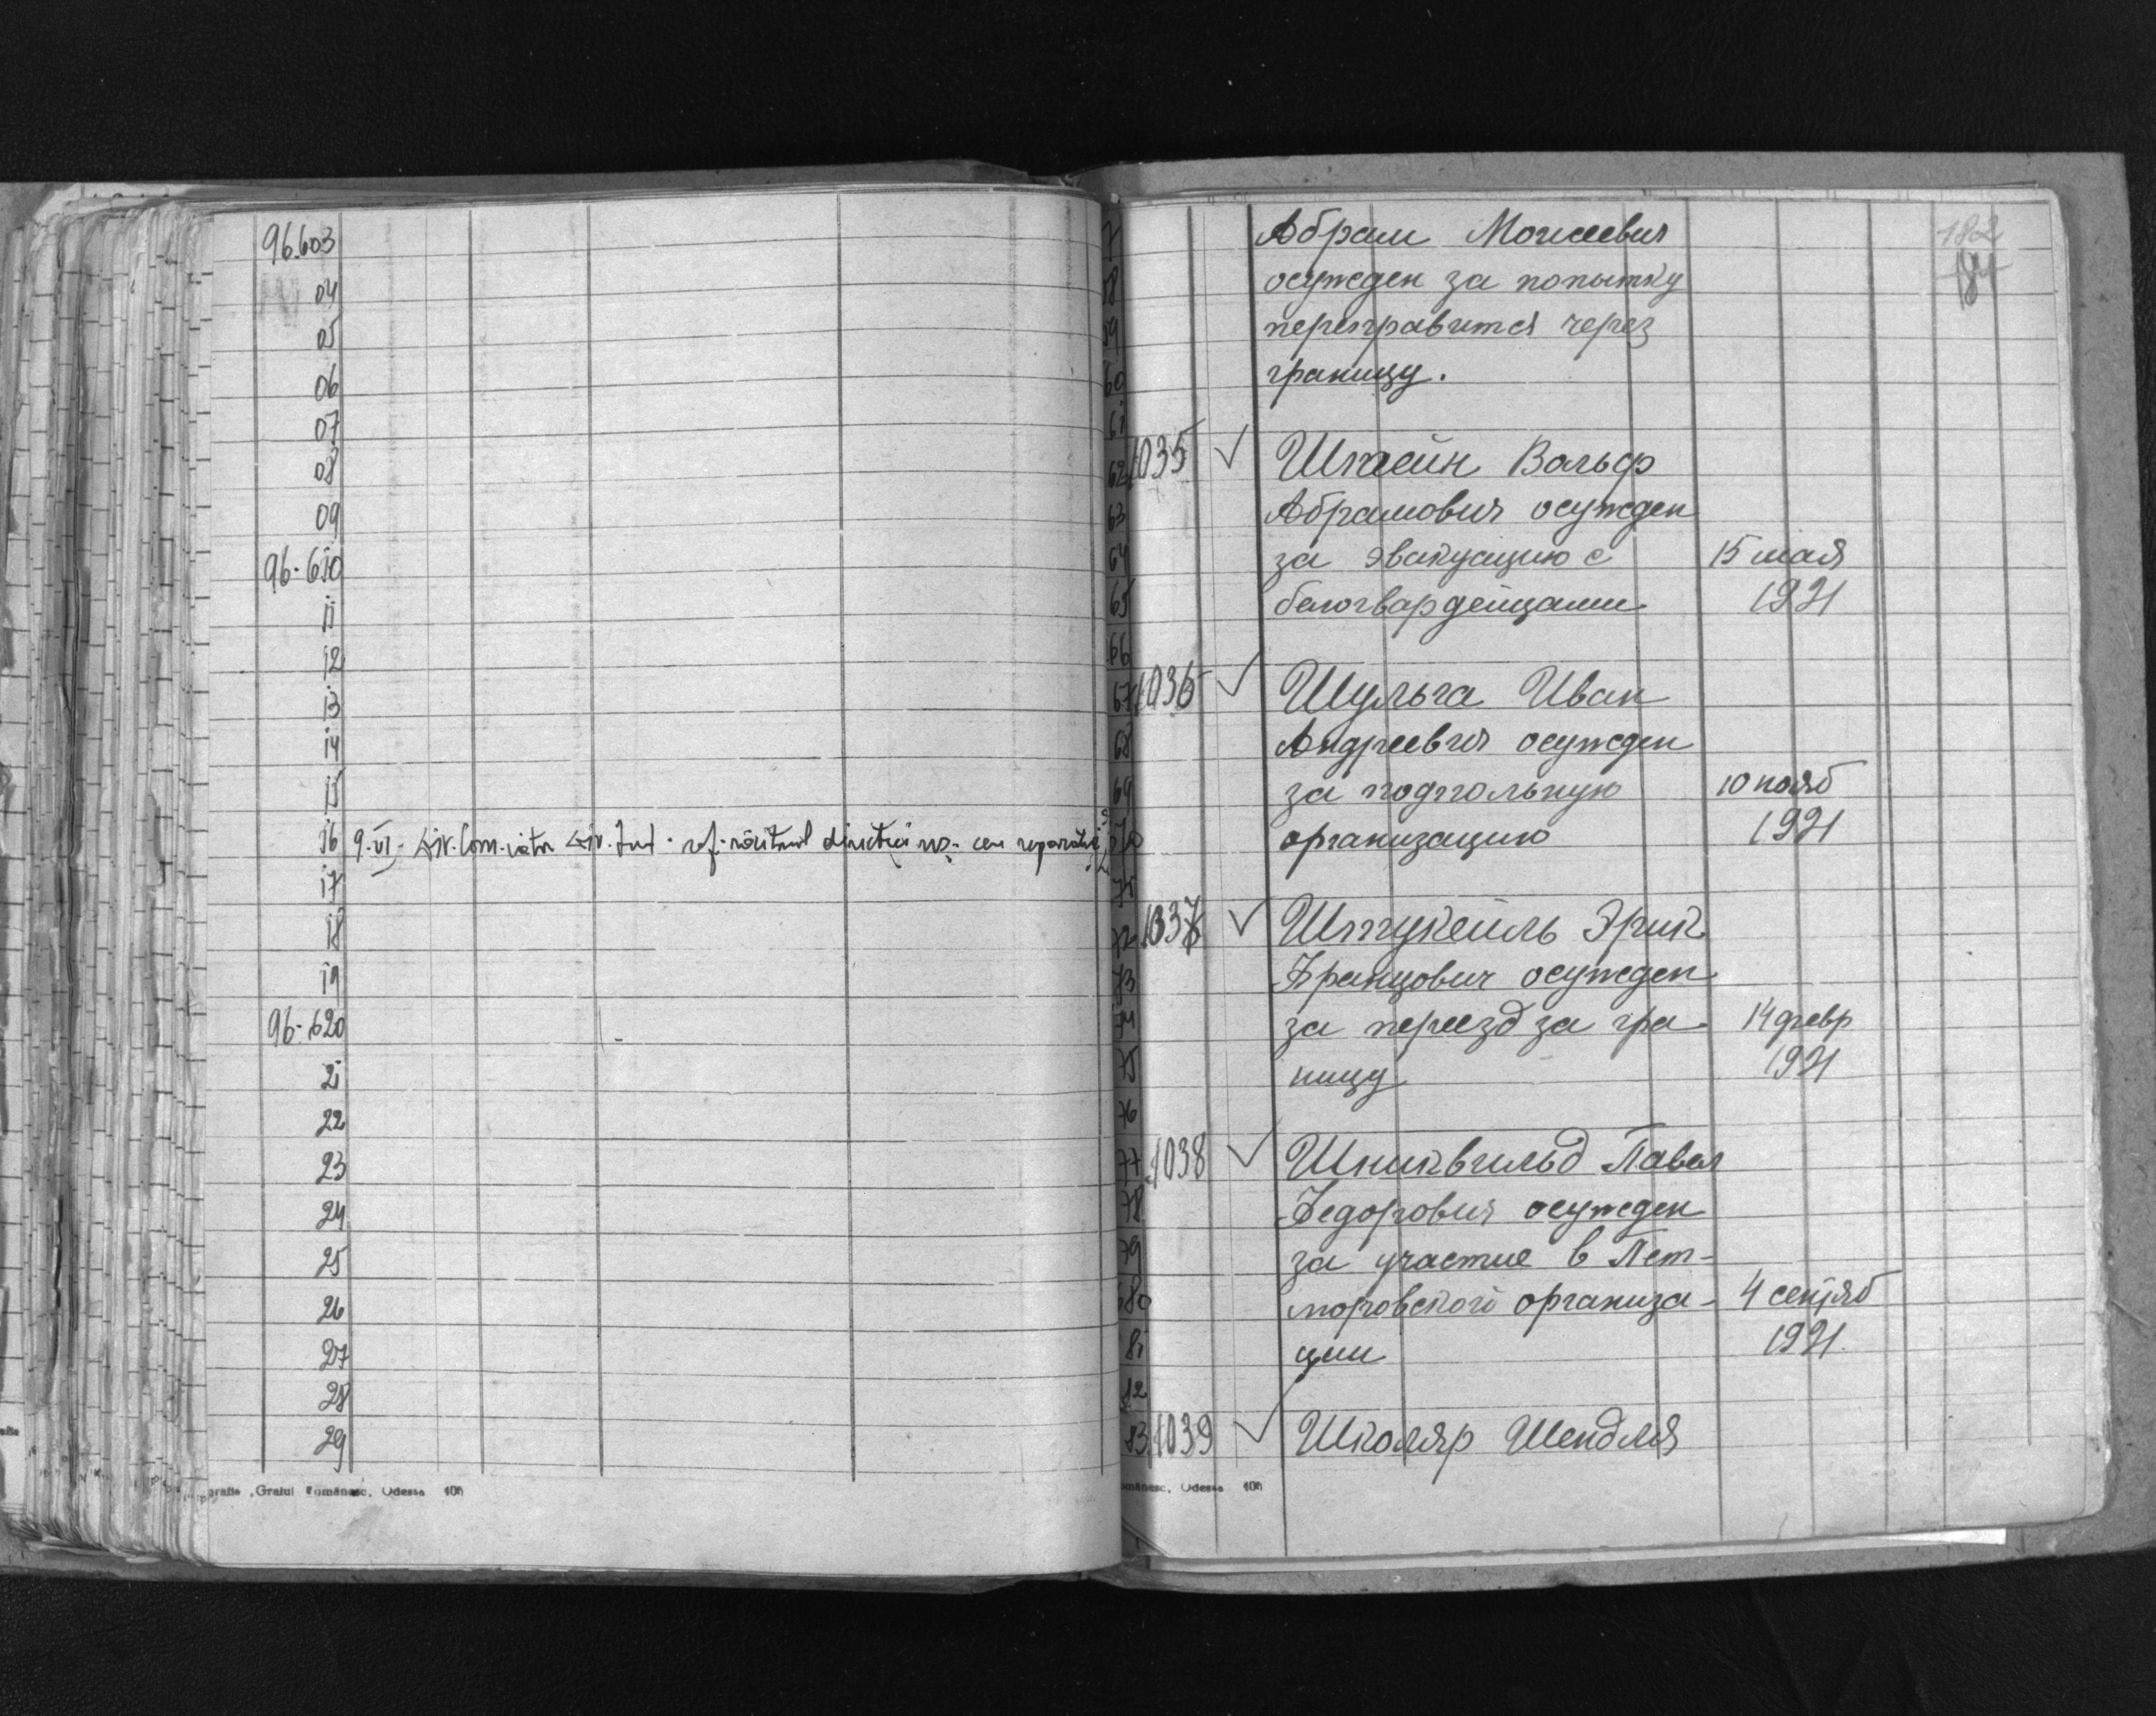 96.603
04
05
06
07
08
09
96-610
11
12
13
14
15
16 9-VI
17
18
19
96-620
21
22
23
24
25
26
27
28
29
„Graiul Românesc, Odessa
182
184
Абрам Моисеевич
осужден за попытку
переправится через
границу.
1035 ✓ Штейн Вольф
Абрамович осужден
за эвакуацию с 15 мая
белогвардейцами 1921
1036 ✓ Шульга Иван
Андреевич осужден
за подпольную 10 нояб
организацию 1921
1037 ✓ Штукейль Эрик
Францович осужден
за переезд за гра- 14 февр
ницу 1921
1038 ✓ Шниквильд Павел
Федорович осужден
за участие в Пет-
люровской организа- 4 сентяб
ции 1921.
1039 ✓ Школяр Шендля
63
64
65
66
67
68
69
73
74
75
76
77
78
79
80
81
82
83
Odessa